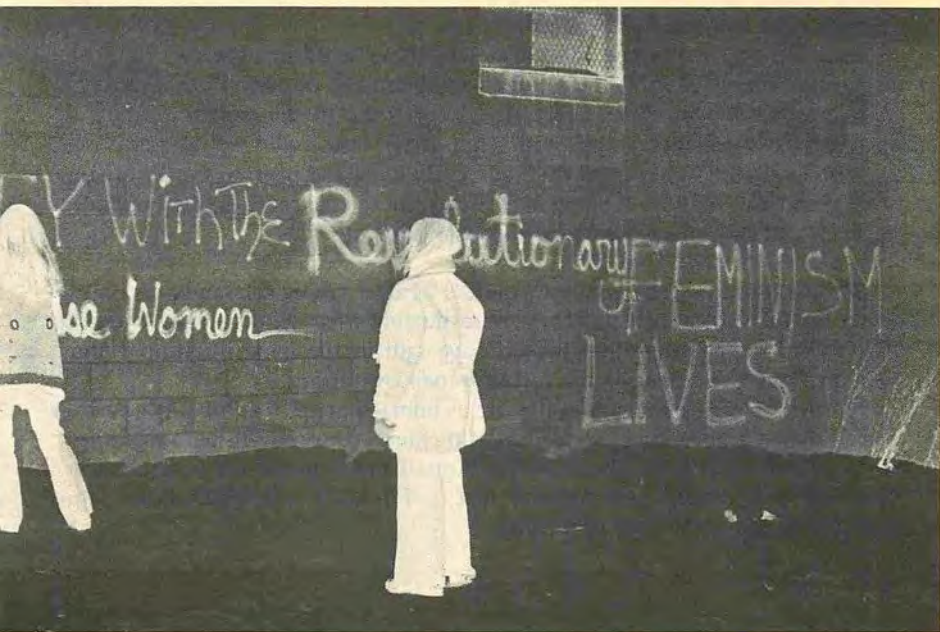 TY With The Revolutionary
se Women
OF FEMINISM
LIVES